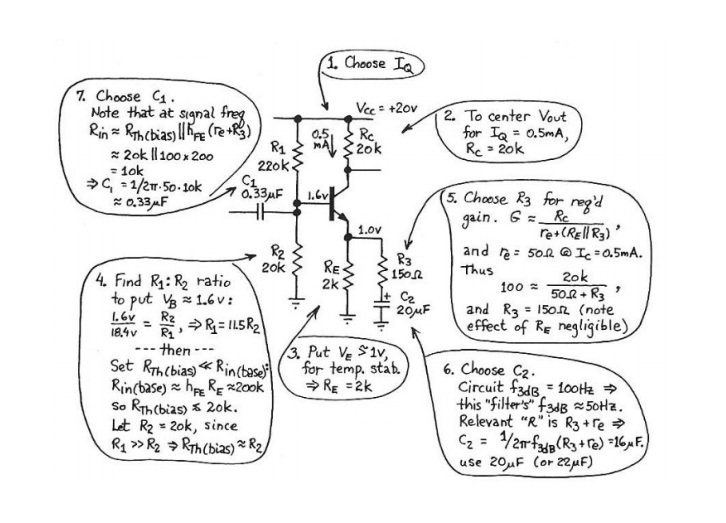 1. Choose IQ
7. Choose C1.
Note that at signal freq
Rin ≈ RTh(bias)||hFE(re+R3)
≈ 20k||100×200
= 10k
⇒ C1 = 1/2π·50·10k
≈ 0.33µF
Vcc = +20v
0.5
mA
Rc
20k
R1
220k
C1
0.33µF
1.6v
1.0v
R2
20k
RE
2k
R3
150Ω
+
C2
20µF
2. To center Vout
for IQ = 0.5mA,
Rc = 20k
5. Choose R3 for req'd
gain. G ≈ Rc / re+(RE||R3) ,
and re = 50Ω @ Ic = 0.5mA.
Thus
100 ≈ 20k / 50Ω + R3 ,
and R3 = 150Ω (note
effect of RE negligible)
4. Find R1:R2 ratio
to put VB ≈ 1.6v:
1.6v / 18.4v = R2 / R1, ⇒ R1 = 11.5R2
--- then ---
Set RTh(bias) ≪ Rin(base):
Rin(base) ≈ hFE RE ≈ 200k
so RTh(bias) ≤ 20k.
Let R2 = 20k, since
R1 >> R2 ⇒ RTh(bias) ≈ R2
3. Put VE ≈ 1v,
for temp. stab.
⇒ RE = 2k
6. Choose C2.
Circuit f3dB = 100Hz ⇒
this "filter's" f3dB ≈ 50Hz.
Relevant "R" is R3 + re ⇒
C2 = 1/2πf3dB(R3+re) = 16µF.
use 20µF (or 22µF)